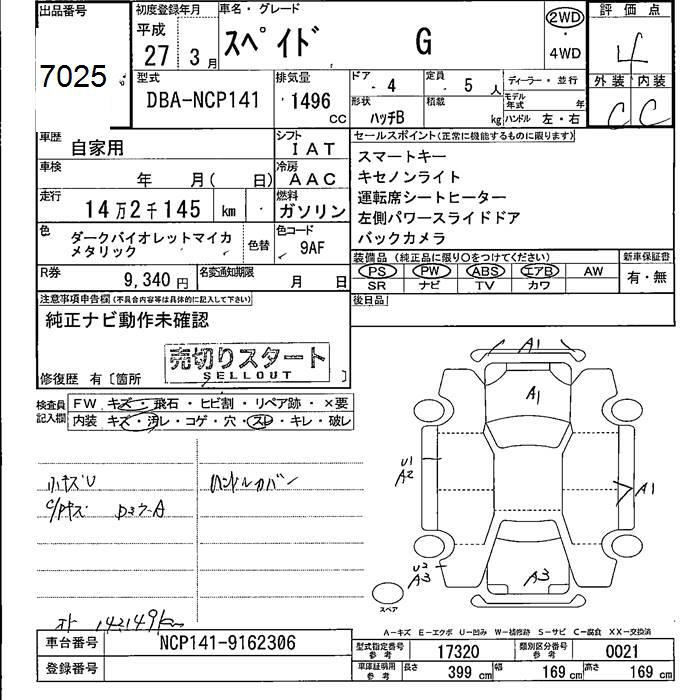 出品番号
7025
初度登録年月
平成
27 3月
車名・グレード
スペイド G
2WD
・
4WD
評価点
4
外装 内装
C C
型式
DBA-NCP141
排気量
1496
CC
ドア
4
定員
5 人
ディーラー・並行
形状
ハッチB
積載
kg
モデル年式 年
ハンドル 左・右
車歴
自家用
シフト
IAT
車検
年 月( 日)
冷房
AAC
走行
14万2千145 km
燃料
ガソリン
色
ダークバイオレットマイカメタリック
色替
色コード
9AF
R券
9,340 円
名変通知期限
月 日
セールスポイント(正常に機能するものに限ります)
スマートキー
キセノンライト
運転席シートヒーター
左側パワースライドドア
バックカメラ
装備品 (純正品に限り○をつけてください)
PS PW ABS エアB AW
SR ナビ TV カワ
新車保証書
有・無
後日品
注意事項申告欄(不具合内容等は具体的に記入して下さい)
純正ナビ動作未確認
売切りスタート
SELLOUT
修復歴 有〔箇所 〕
検査員記入欄
FW キズ・飛石・ヒビ割・リペア跡・×要
内装 キズ・汚レ・コゲ・穴・スレ・キレ・破レ
小キズU
ハンドルカバー
142149km
A1
A1
U1
A2
A1
U2
A3
A3
スペア
A-キズ E-エクボ U-凹み W-補修跡 S-サビ C-腐食 XX-交換済
車台番号
NCP141-9162306
登録番号
型式指定番号参考
17320
類別区分番号参考
0021
車庫証明用参考
長さ 399 cm 幅 169 cm 高さ 169 cm